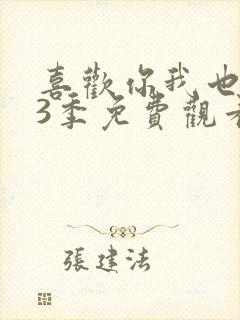 喜歡你我也
3季免費觀看
張建法